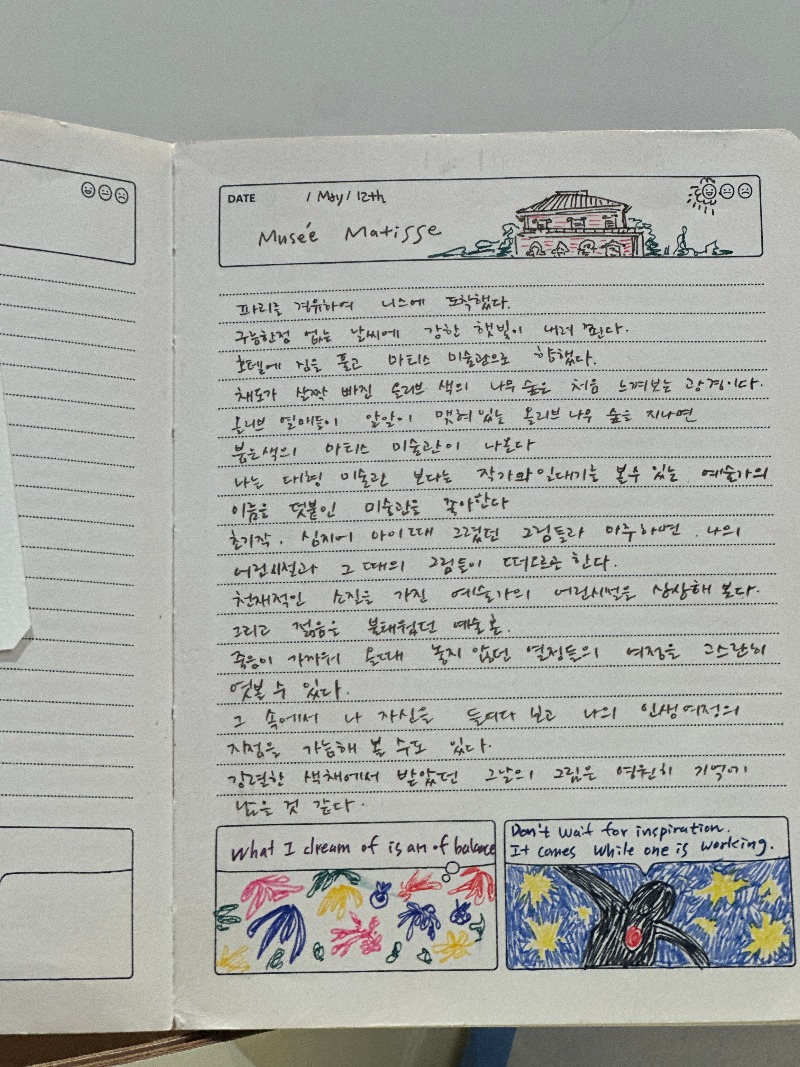 DATE / May / 12th
Museé Matisse
파리를 경유하여 니스에 도착했다.
구름한점 없는 날씨에 강한 햇빛이 내려 찐다.
호텔에 짐을 풀고 마티스 미술관으로 향했다.
채도가 살짝 빠진 올리브 색의 나무 숲을 처음 느껴보는 광경이다.
올리브 열매들이 알알이 맺혀있는 올리브 나무 숲을 지나면
붉은색의 마티스 미술관이 나온다
나는 대형 미술관 보다는 작가의 일대기를 볼수 있는 예술가의
이름을 덧붙인 미술관을 좋아한다
초기작, 심지어 아이때 그렸던 그림들과 마주하면 나의
어린시절과 그 때의 그림들이 떠오르곤 한다.
천재적인 소질을 가진 예술가의 어린시절을 상상해 본다.
그리고 젊음을 불태웠던 예술혼.
죽음이 가까워 올때 놓지 않던 열정들의 여정을 고스란히
엿볼 수 있다.
그 속에서 나 자신을 들여다 보고 나의 인생여정의
지점을 가늠해 볼 수도 있다.
강렬한 색채에서 받았던 그날의 그림은 영원히 기억에
남을 것 같다.
What I dream of is an of balance
Don't wait for inspiration.
It comes while one is working.